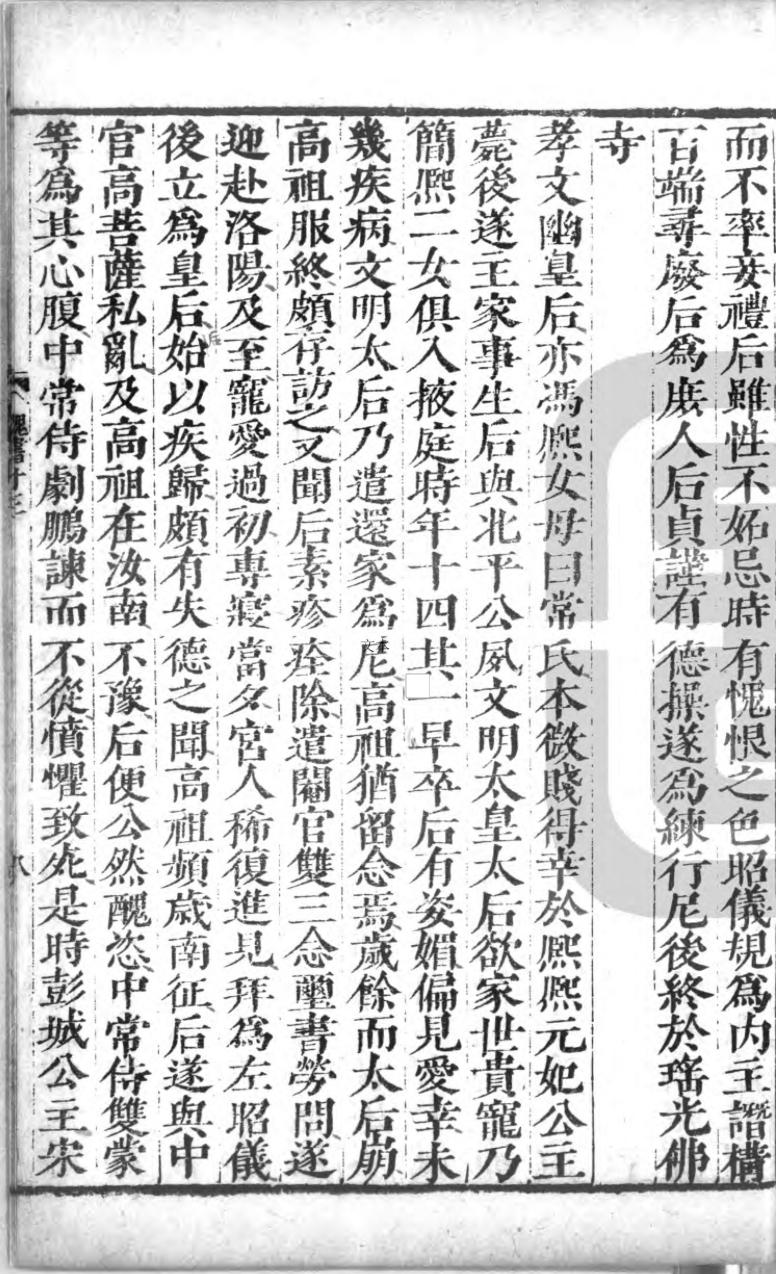 而不率妾禮后雖性不妬忌時有愧恨之色昭儀規爲内主譖構
百端尋廢后爲庶人后貞謹有德操遂爲練行尼後終於瑤光佛
寺
孝文幽皇后亦馮熙女母曰常氏本微賤得幸於熙熙元妃公主
薨後遂主家事生后與北平公夙文明太皇太后欲家世貴寵乃
簡熙二女俱入掖庭時年十四其一早卒后有姿媚偏見愛幸未
幾疾病文明太后乃遣還家爲尼高祖猶留念焉歲餘而太后崩
高祖服終頗存訪之又聞后素疹痊除遣閹官雙三念璽書勞問遂
迎赴洛陽及至寵愛過初專寢當夕宮人稀復進見拜爲左昭儀
後立爲皇后始以疾歸頗有失德之聞高祖頻歲南征后遂與中
官高菩薩私亂及高祖在汝南不豫后便公然醜恣中常侍雙蒙
等爲其心腹中常侍劇鵬諫而不從憤懼致死是時彭城公主宋
魏書十三
八